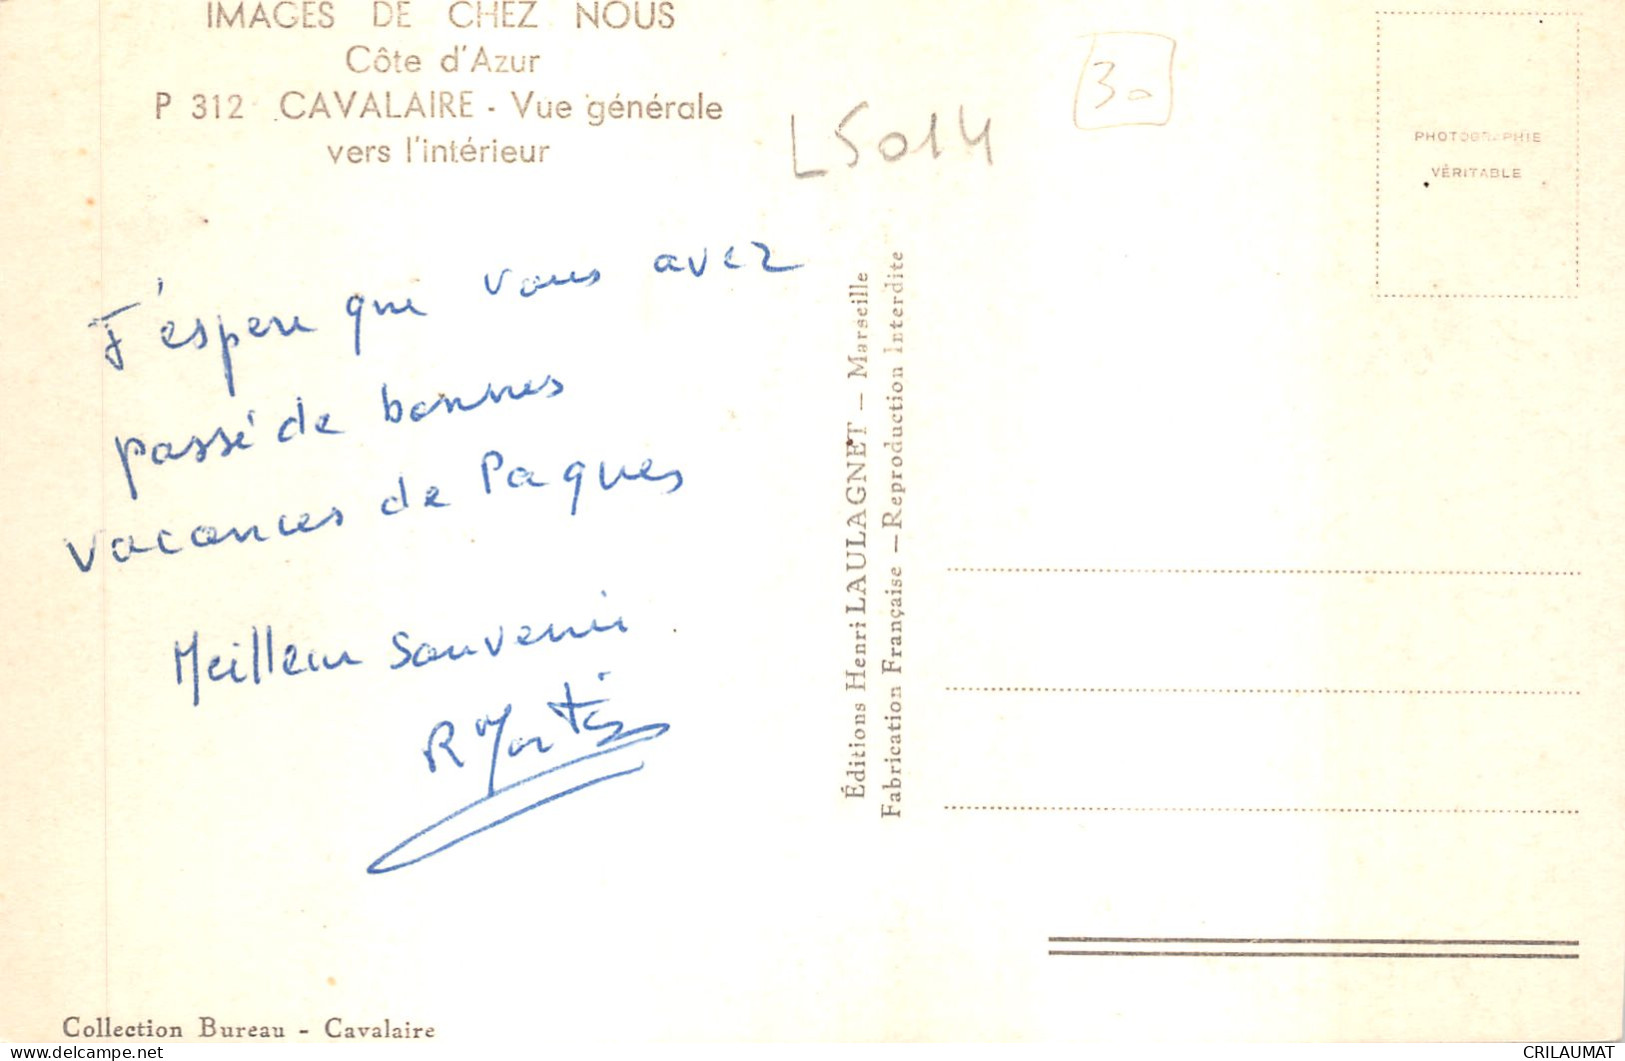 IMAGES DE CHEZ NOUS
Côte d'Azur
P 312 CAVALAIRE - Vue générale
vers l'intérieur
L5014
30
PHOTOGRAPHIE
VÉRITABLE
J'espere que vous avez
passé de bonnes
vacances de Paques
Meilleur souvenir
R Martin
Éditions Henri LAULAGNET — Marseille
Fabrication Française — Reproduction Interdite
Collection Bureau - Cavalaire
CRILAUMAT